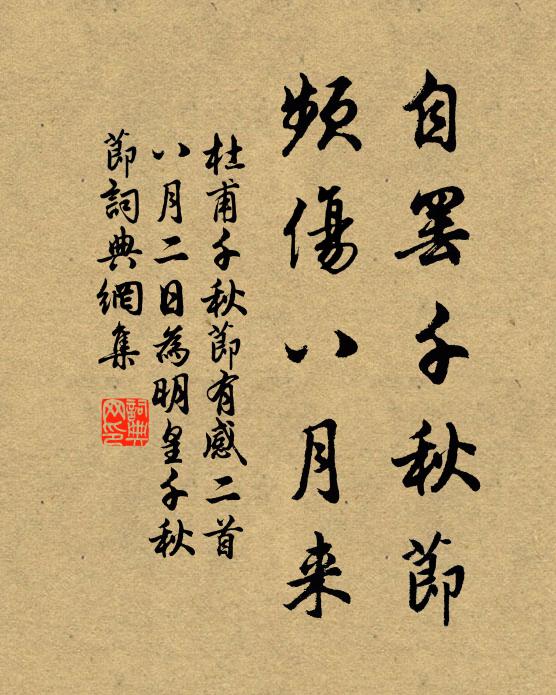 自罢千秋節
頻傷八月来
杜甫千秋節有感二首
八月二日為明皇千秋
節詞典網集
詞典网印